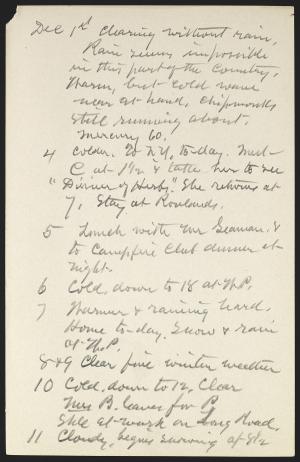 Dec 1st clearing without rain,
Rain seems impossible
in this part of the country,
Warm, but cold wave
near at hand, chipmonks
still running about.
Mercury 60.
4 colder. To N.Y, to-day. Meet
C. at 1 1/2 & take her to see
"Dinner of Herbs". She returns at
7, Stay at Rowlands.
5 Lunch with Mr Seaman. &
to Campfire Club dinner at
night.
6 Cold, down to 18 at W.P.
7 Warmer & raining hard.
Home to-day. Snow & rain
at W.P.
8 & 9 Clear fine winter weather
10 Cold, down to 12, Clear
Mrs B. leaves for P.
Still at work on Long Road,
11 Cloudy, begins snowing at 8 1/2